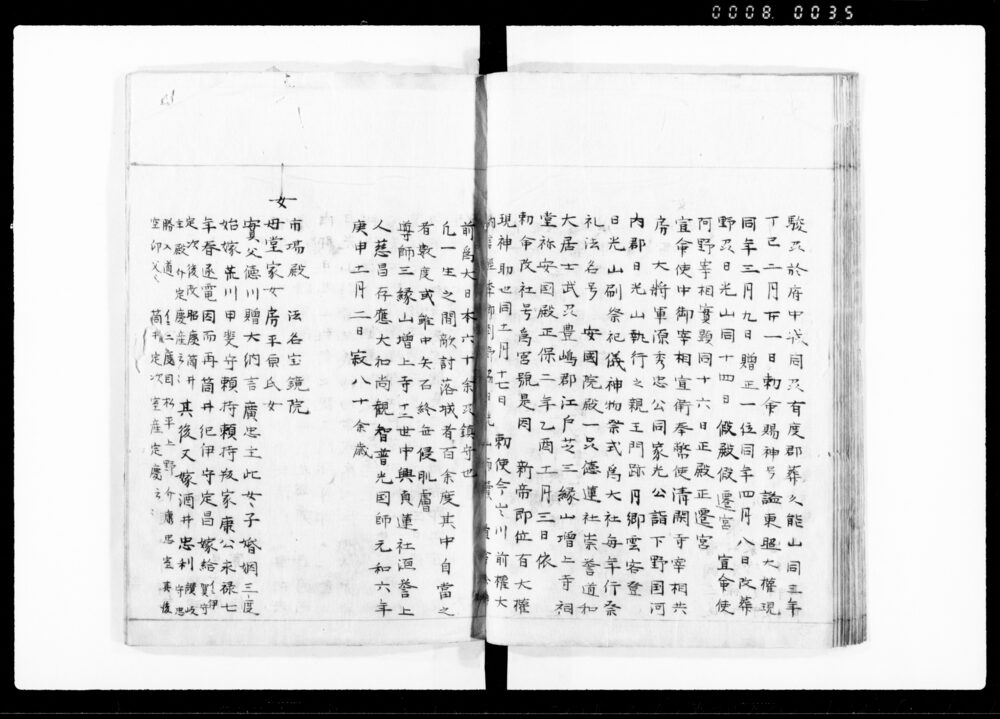 0008 0035
駿刕於府中城同刕有度郡葬久能山同三年
丁巳二月廿一日勅命賜神号謚東照大權現
同年三月九日贈正一位同年四月八日改葬
野刕日光山同十四日假殿假遷宮 宣命使
阿野宰相實顕同十六日正殿正遷宮
宣命使中御宰相宣衡奉幣使清閑寺宰相共
房大將軍源秀忠公同家光公詣下野国河
内郡日光山執行之親王門跡月卿雲客登
日光山副祭祀儀神物祭式爲大社毎年行奈
礼法名号 安國院殿一品德蓮社崇誉道和
大居士武刕豊嶋郡江戸芝三縁山増上寺相
堂祢安國殿正保二年乙酉十一月三日依
勅命改社号爲宮號是因 新帝即位百大權
現神助也同十一月十七日 勅使今出川前權大
前爲大日本六十余刕鎮守也
凡一生之間敵討落城者百余度其中自當之
者數度或雖中矢石終無侵肌膚
導師三縁山増上寺十二世中興貞蓮社源誉上
人慈昌存應大和尚観智普光国師元和六年
庚申十一月二日寂八十余歳
女
市場殿 法名宝鏡院
母堂家女房平原氏女
實父德川贈大納言廣忠主此女子婚姻三度
始嫁荒川甲斐守頼持頼持叛家康公永禄七
年春逐電因而再筒井紀伊守定昌嫁給
定次後改昭慶筒井其後又嫁酒井忠利
筒井定次室産定慶云々